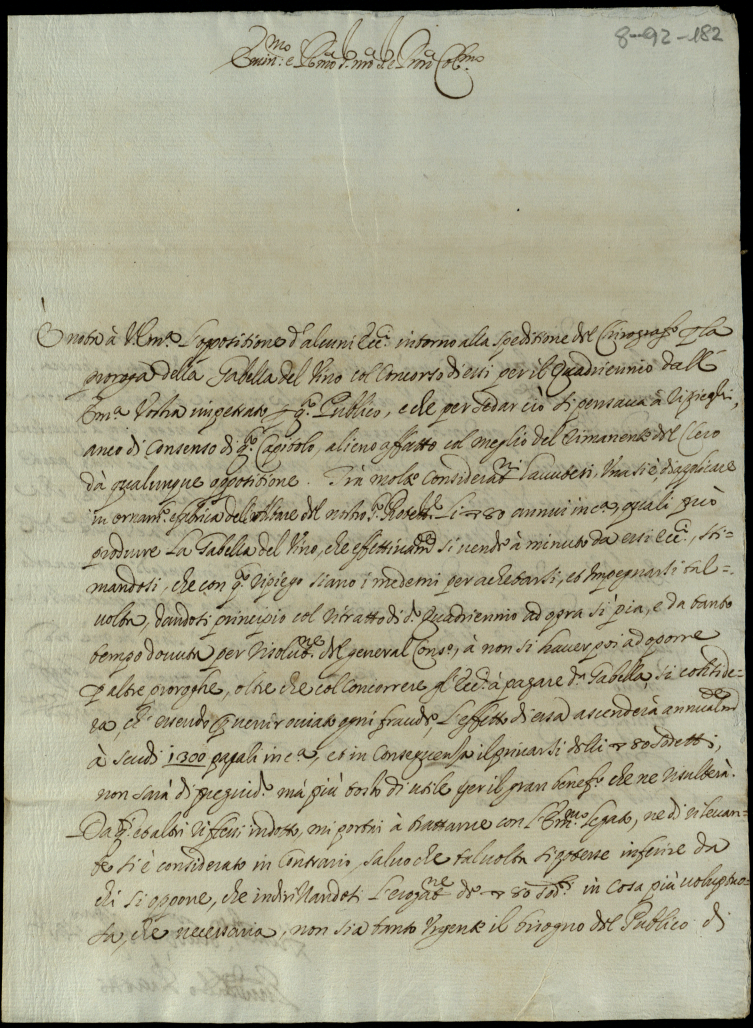 8-92-182
Em.mo e R.mo Sig.r mio Sig.r e P'ron Col.mo
È noto à V. Em.a l'oppositione d'alcuni Ecc.i intorno alla speditione del Chirografo p la
proroga della Gabella del Vino col Concorso di essi per il Quadriennio dall'
Em.a Vostra impetrato p q.o Publico, e che per sedar ciò si pensava à ripieghi,
anco di Consenso di q.o Capitolo, alieno affatto col meglio del rimanente del Clero
da qualunque oppositione. Frà molte considerat.ni havutesi, Una si è, d'applicare
in ornam.o e fabrica dell'Altare del nostro li 80 annui inc.a, quali può
produrre La Gabella del Vino, che effettivam.te si vende à minuto da essi Ecc.i, sti-
mandosi, che con q.o ripiego siano i medemi per achetarsi, et impegnarsi tal-
volta, dandosi principio col ritratto di d.o Quadriennio ad opra sì pia, e da tanto
tempo dovuta per risolut.ne del general Cons.o, à non si haver poi ad oporre
p altre proroghe, oltre che col Concorrere gl'Ecc.i à pagare d.a Gabella, si conside-
ra, ch' essendo p venir oviato ogni fraude, l'effetto di essa ascenderà annualm.te
à scudi 1300 papali inc.a, et in Conseguenza il privarsi delli 80 sodetti,
non sarà di pregiud.o mà più tosto di utile per il gran benef.o che ne risulterà.
Da q.i et altri riflessi indotto, mi portai à trattarne con l'Em.mo Legato, ne di rilevan-
te si è considerato in Contrario, salvo che talvolta si potesse inferire da
chi si oppone, che indrizzandosi l'erogat.ne de 80 sod.i in cosa più voluptuo-
sa, che necessaria, non sia tanto Urgente il bisogno del Publico di